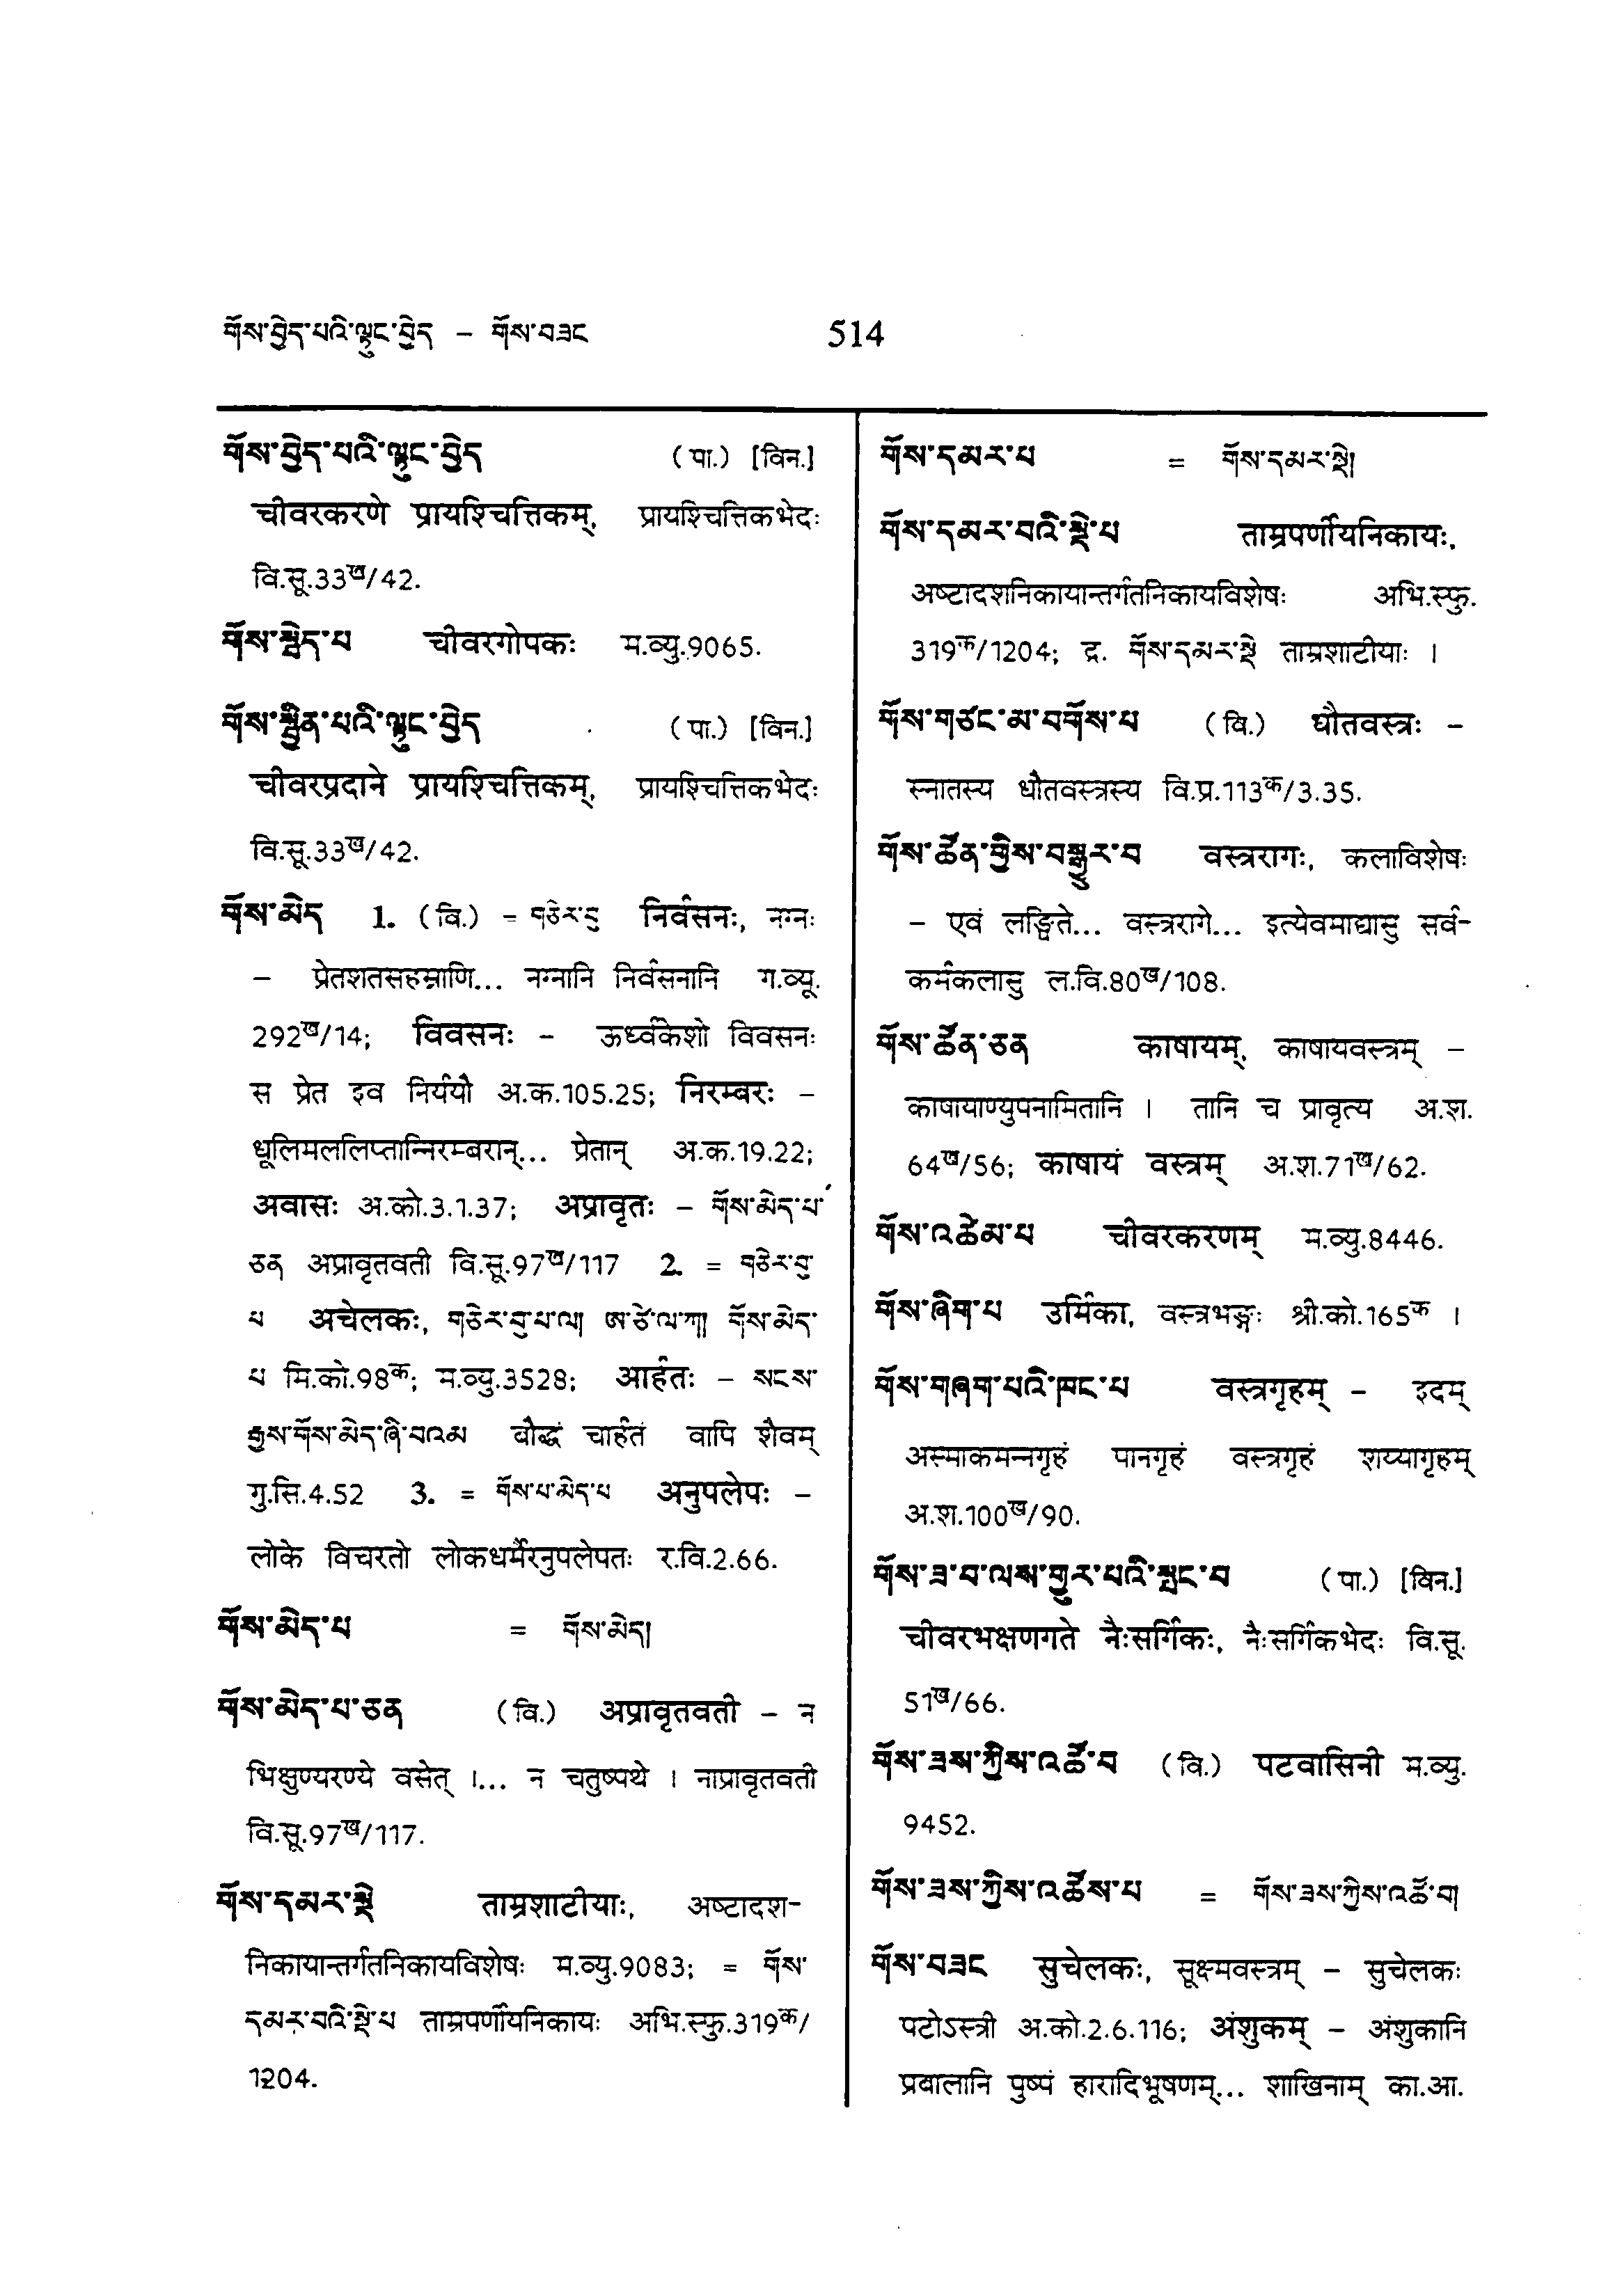 གོས་བྱེད་པའི་ལྟུང་བྱེད – གོས་བཟང
514
གོས་བྱེད་པའི་ལྟུང་བྱེད (पा.) [विन.]
चीवरकरणे प्रायश्चित्तिकम्, प्रायश्चित्तिकभेदः
वि.सू.33ख/42.
གོས་སྦེད་པ चीवरगोपकः म.व्यु.9065.
གོས་སྦྱིན་པའི་ལྟུང་བྱེད (पा.) [विन.]
चीवरप्रदाने प्रायश्चित्तिकम्, प्रायश्चित्तिकभेदः
वि.सू.33ख/42.
གོས་མེད 1. (वि.) = གཅེར་བུ निर्वसनः, नग्नः
– प्रेतशतसहस्राणि... नग्नानि निर्वसनानि ग.व्यू.
292ख/14; विवसनः – ऊर्ध्वकेशो विवसनः
स प्रेत इव निर्ययौ अ.क.105.25; निरम्बरः –
धूलिमललिप्तान्निरम्बरान्... प्रेतान् अ.क.19.22;
अवासः अ.को.3.1.37; अप्रावृतः – གོས་མེད་པ་
ཅན अप्रावृतवती वि.सू.97ख/117 2. = གཅེར་བུ་
པ अचेलकः, གཅེར་བུ་པ་ལ། ཨ་ཙེ་ལ་ཀ། གོས་མེད་
པ मि.को.98क; म.व्यु.3528; आर्हतः – སངས་
རྒྱས་གོས་མེད་ཞི་བའམ बौद्धं चार्हतं वापि शैवम्
गु.सि.4.52 3. = གོས་པ་མེད་པ अनुपलेपः –
लोके विचरतो लोकधर्मैरनुपलेपतः र.वि.2.66.
གོས་མེད་པ = གོས་མེད།
གོས་མེད་པ་ཅན (वि.) अप्रावृतवती – न
भिक्षुण्यरण्ये वसेत् ।... न चतुष्पथे । नाप्रावृतवती
वि.सू.97ख/117.
གོས་དམར་སྡེ ताम्रशाटीयाः, अष्टादश-
निकायान्तर्गतनिकायविशेषः म.व्यु.9083; = གོས་
དམར་བའི་སྡེ་པ ताम्रपर्णीयनिकायः अभि.स्फु.319क/
1204.
གོས་དམར་པ = གོས་དམར་སྡེ།
གོས་དམར་བའི་སྡེ་པ ताम्रपर्णीयनिकायः,
अष्टादशनिकायान्तर्गतनिकायविशेषः अभि.स्फु.
319क/1204; द्र. གོས་དམར་སྡེ ताम्रशाटीयाः ।
གོས་གཙང་མ་བགོས་པ (वि.) धौतवस्त्रः –
स्नातस्य धौतवस्त्रस्य वि.प्र.113क/3.35.
གོས་ཚོན་གྱིས་བསྒྱུར་བ वस्त्ररागः, कलाविशेषः
– एवं लङ्घिते... वस्त्ररागे... इत्येवमाद्यासु सर्व-
कर्मकलासु ल.वि.80ख/108.
གོས་ཚོན་ཅན काषायम्, काषायवस्त्रम् –
काषायाण्युपनामितानि । तानि च प्रावृत्य अ.श.
64ख/56; काषायं वस्त्रम् अ.श.71ख/62.
གོས་འཚེམ་པ चीवरकरणम् म.व्यु.8446.
གོས་ཞིག་པ उर्मिका, वस्त्रभङ्गः श्री.को.165क ।
གོས་གཞག་པའི་ཁང་པ वस्त्रगृहम् – इदम्
अस्माकमन्नगृहं पानगृहं वस्त्रगृहं शय्यागृहम्
अ.श.100ख/90.
གོས་ཟ་བ་ལས་གྱུར་པའི་སྤང་བ (पा.) [विन.]
चीवरभक्षणगते नैःसर्गिकः, नैःसर्गिकभेदः वि.सू.
51ख/66.
གོས་ཟས་ཀྱིས་འཚོ་བ (वि.) पटवासिनी म.व्यु.
9452.
གོས་ཟས་ཀྱིས་འཚོས་པ = གོས་ཟས་ཀྱིས་འཚོ་བ།
གོས་བཟང सुचेलकः, सूक्ष्मवस्त्रम् – सुचेलकः
पटोऽस्त्री अ.को.2.6.116; अंशुकम् – अंशुकानि
प्रवालानि पुष्पं हारादिभूषणम्... शाखिनाम् का.आ.